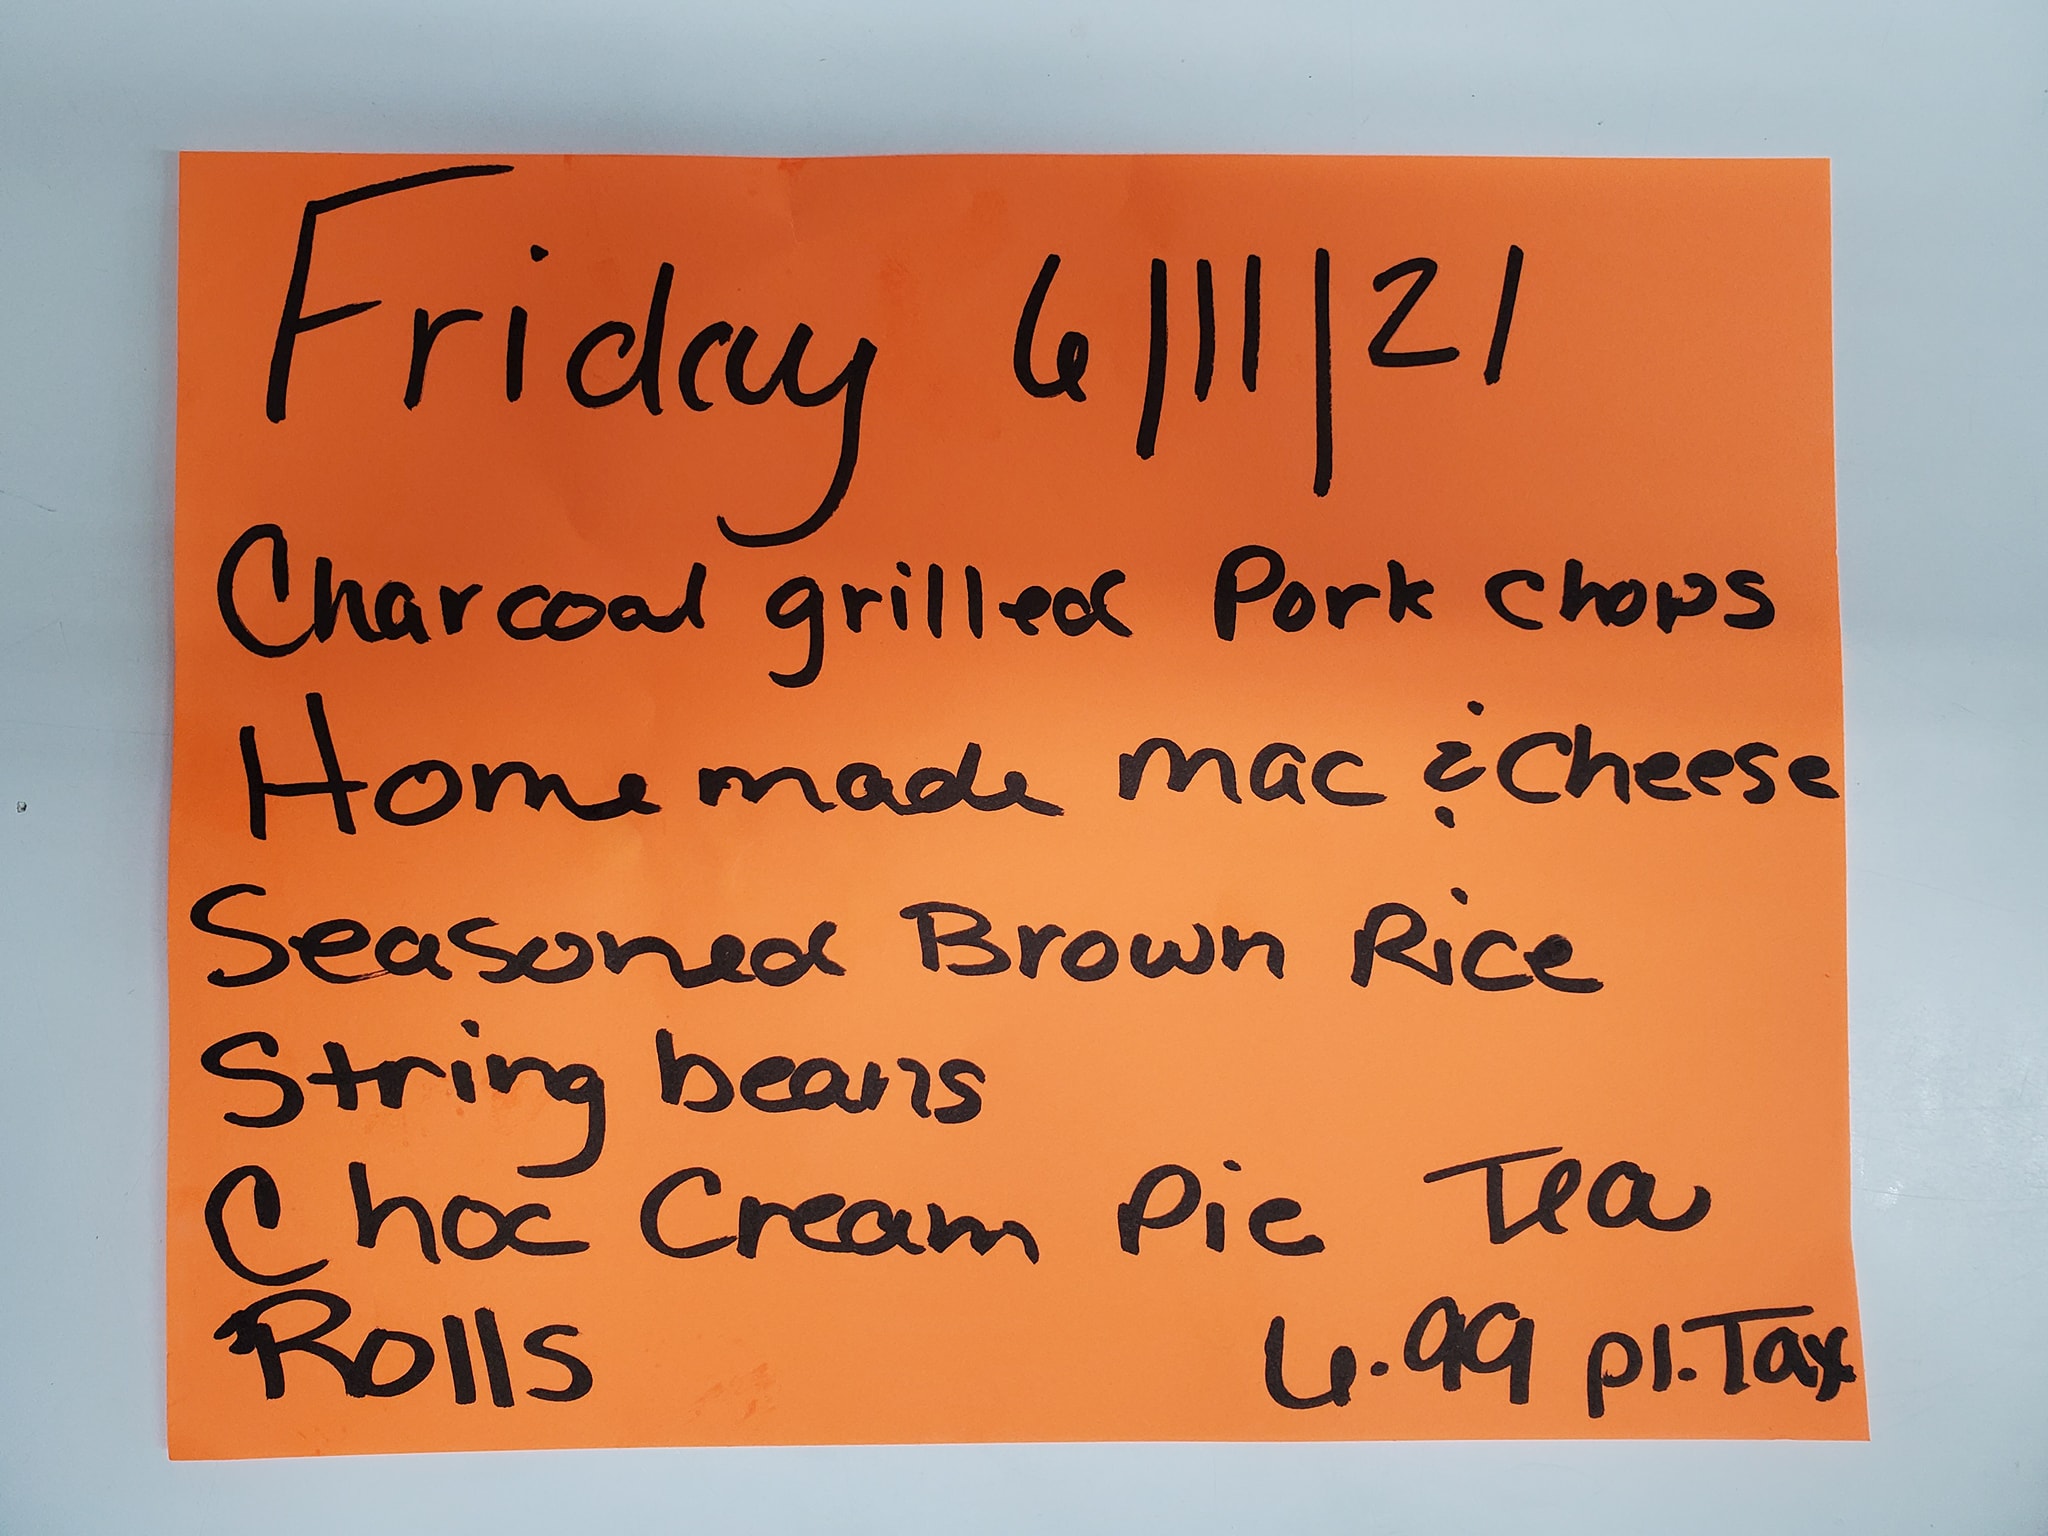 Friday 6/11/21
Charcoal grilled Pork chops
Homemade mac & Cheese
Seasoned Brown Rice
String beans
Choc Cream Pie Tea
Rolls 6.99 pl. Tax